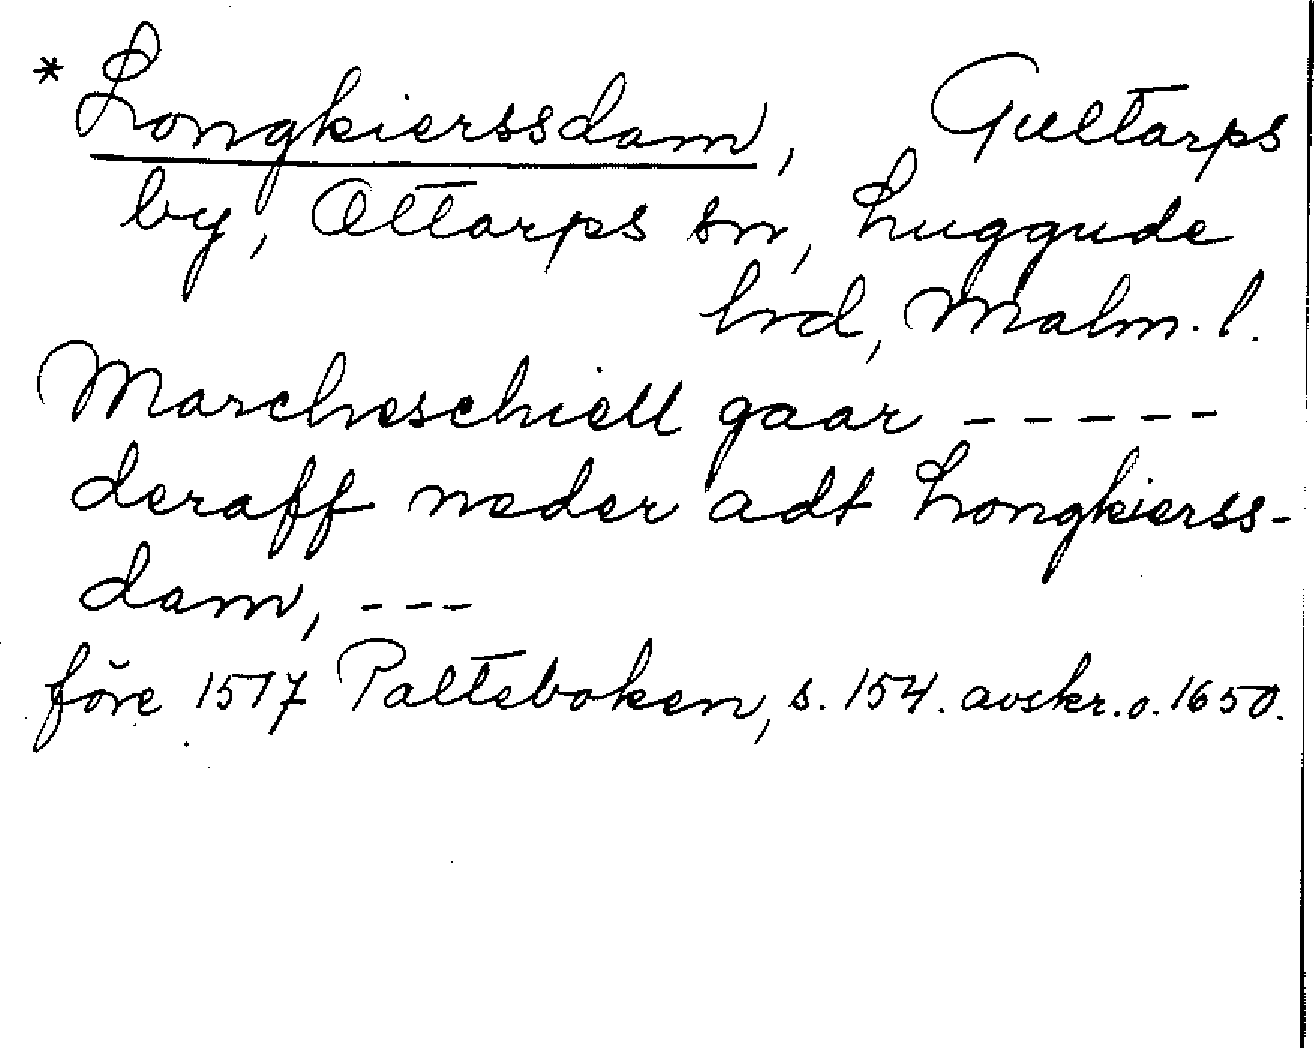 * Longkierssdam, Gultarps
by, Ottarps sn, Luggude
hrd, Malm. l.
Marcheschiell gaar - - - - -
deraff neder adt Longkierss-
dam, - - -
före 1517 Palteboken, s. 154. avskr. o. 1650.